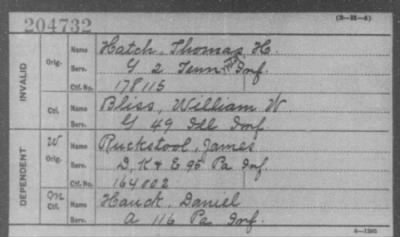 204732
(3-M-A)
INVALID
Orig. Name Hatch, Thomas H.
Serv. G 2 Tenn Inf.
Ctf. No. 178115
Ctf. Name Bliss, William W
Serv. G 49 Ill Inf
DEPENDENT
W Orig. Name Ruckstool, James
Serv. D, K & E 95 Pa Inf.
Ctf. No. 164002
Ctf. Name Hauck, Daniel
Serv. A 116 Pa Inf.